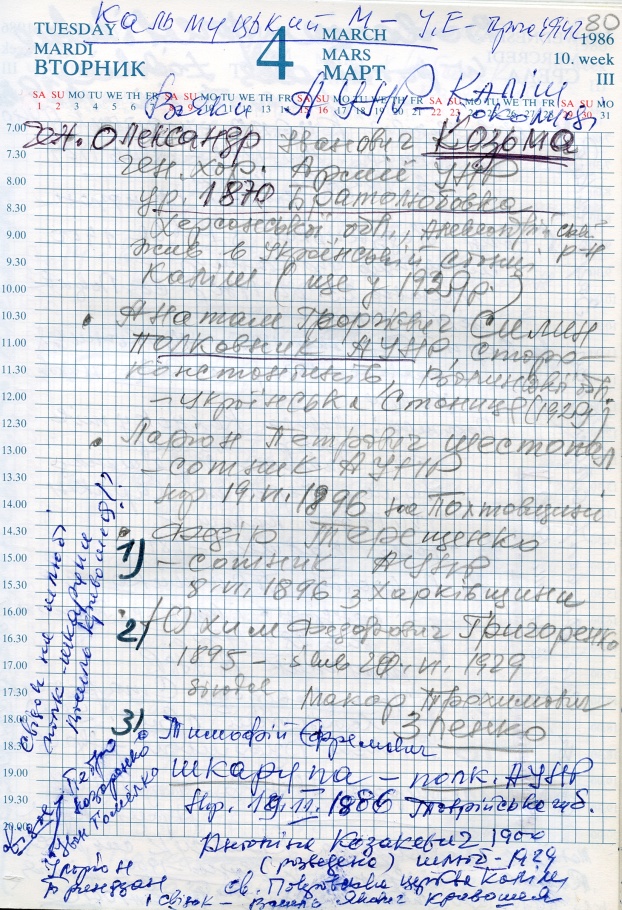 Кальмуцький М- У.Е- Прага 1942
80
TUESDAY
MARDI
ВТОРНИК
4
MARCH
MARS
МАРТ
1986
10. week
III
АУНР Каліш
SA SU MO TU WE TH FR SA SU MO TU WE TH FR SA SU MO TU WE TH FR SA SU MO TU WE TH FR SA SU MO
1 2 3 4 5 6 7 8 9 10 11 12 13 14 15 16 17 18 19 20 21 22 23 24 25 26 27 28 29 30 31
7.00 Ген. Олександр Іванович Козьма
7.30 ген. хор. Армії УНР
8.00 ур. 1870 Братолюбовка
8.30 Херсонської обл., Александрійський р-н
9.00 жив в Українській Станиці
9.30 Каліш (ще у 1929 р.)
10.00
10.30 Анатоль Георгієвич Силин
11.00 Полковник АУНР, Старо-
11.30 Константинів, Волинської обл.
12.00 - Українська Станиця (1929)
12.30 Ларіон Петрович Шестопал
13.00 - сотник АУНР
13.30 нар 19.VI.1896 на Полтавщині
14.00
14.30 Федір Терещенко
15.00 1) - сотник АУНР
15.30 8.VI.1896 з Харківщини
16.00 2) Юхим Федорович Григоренко
16.30 1895 - ślub 1929
17.00 Макар Трохимович
17.30 Зленко
18.00 3) Тимофій Єфремович
18.30 Шкарупа - полк. АУНР
19.00 Нар. 19.II.1886 Таврійська губ.
19.30
20.00 Антоніна Козакевич 1900
(розведена) шлюб - 1929
св. Покровська церква Каліш
свідок - Василь Кривошея
Свідок на шлюбі
полк - Шкарупи
Василь Кривошея!?
Петро
Назаренко
Іван Гомелко
Іларіон
Бриндзан